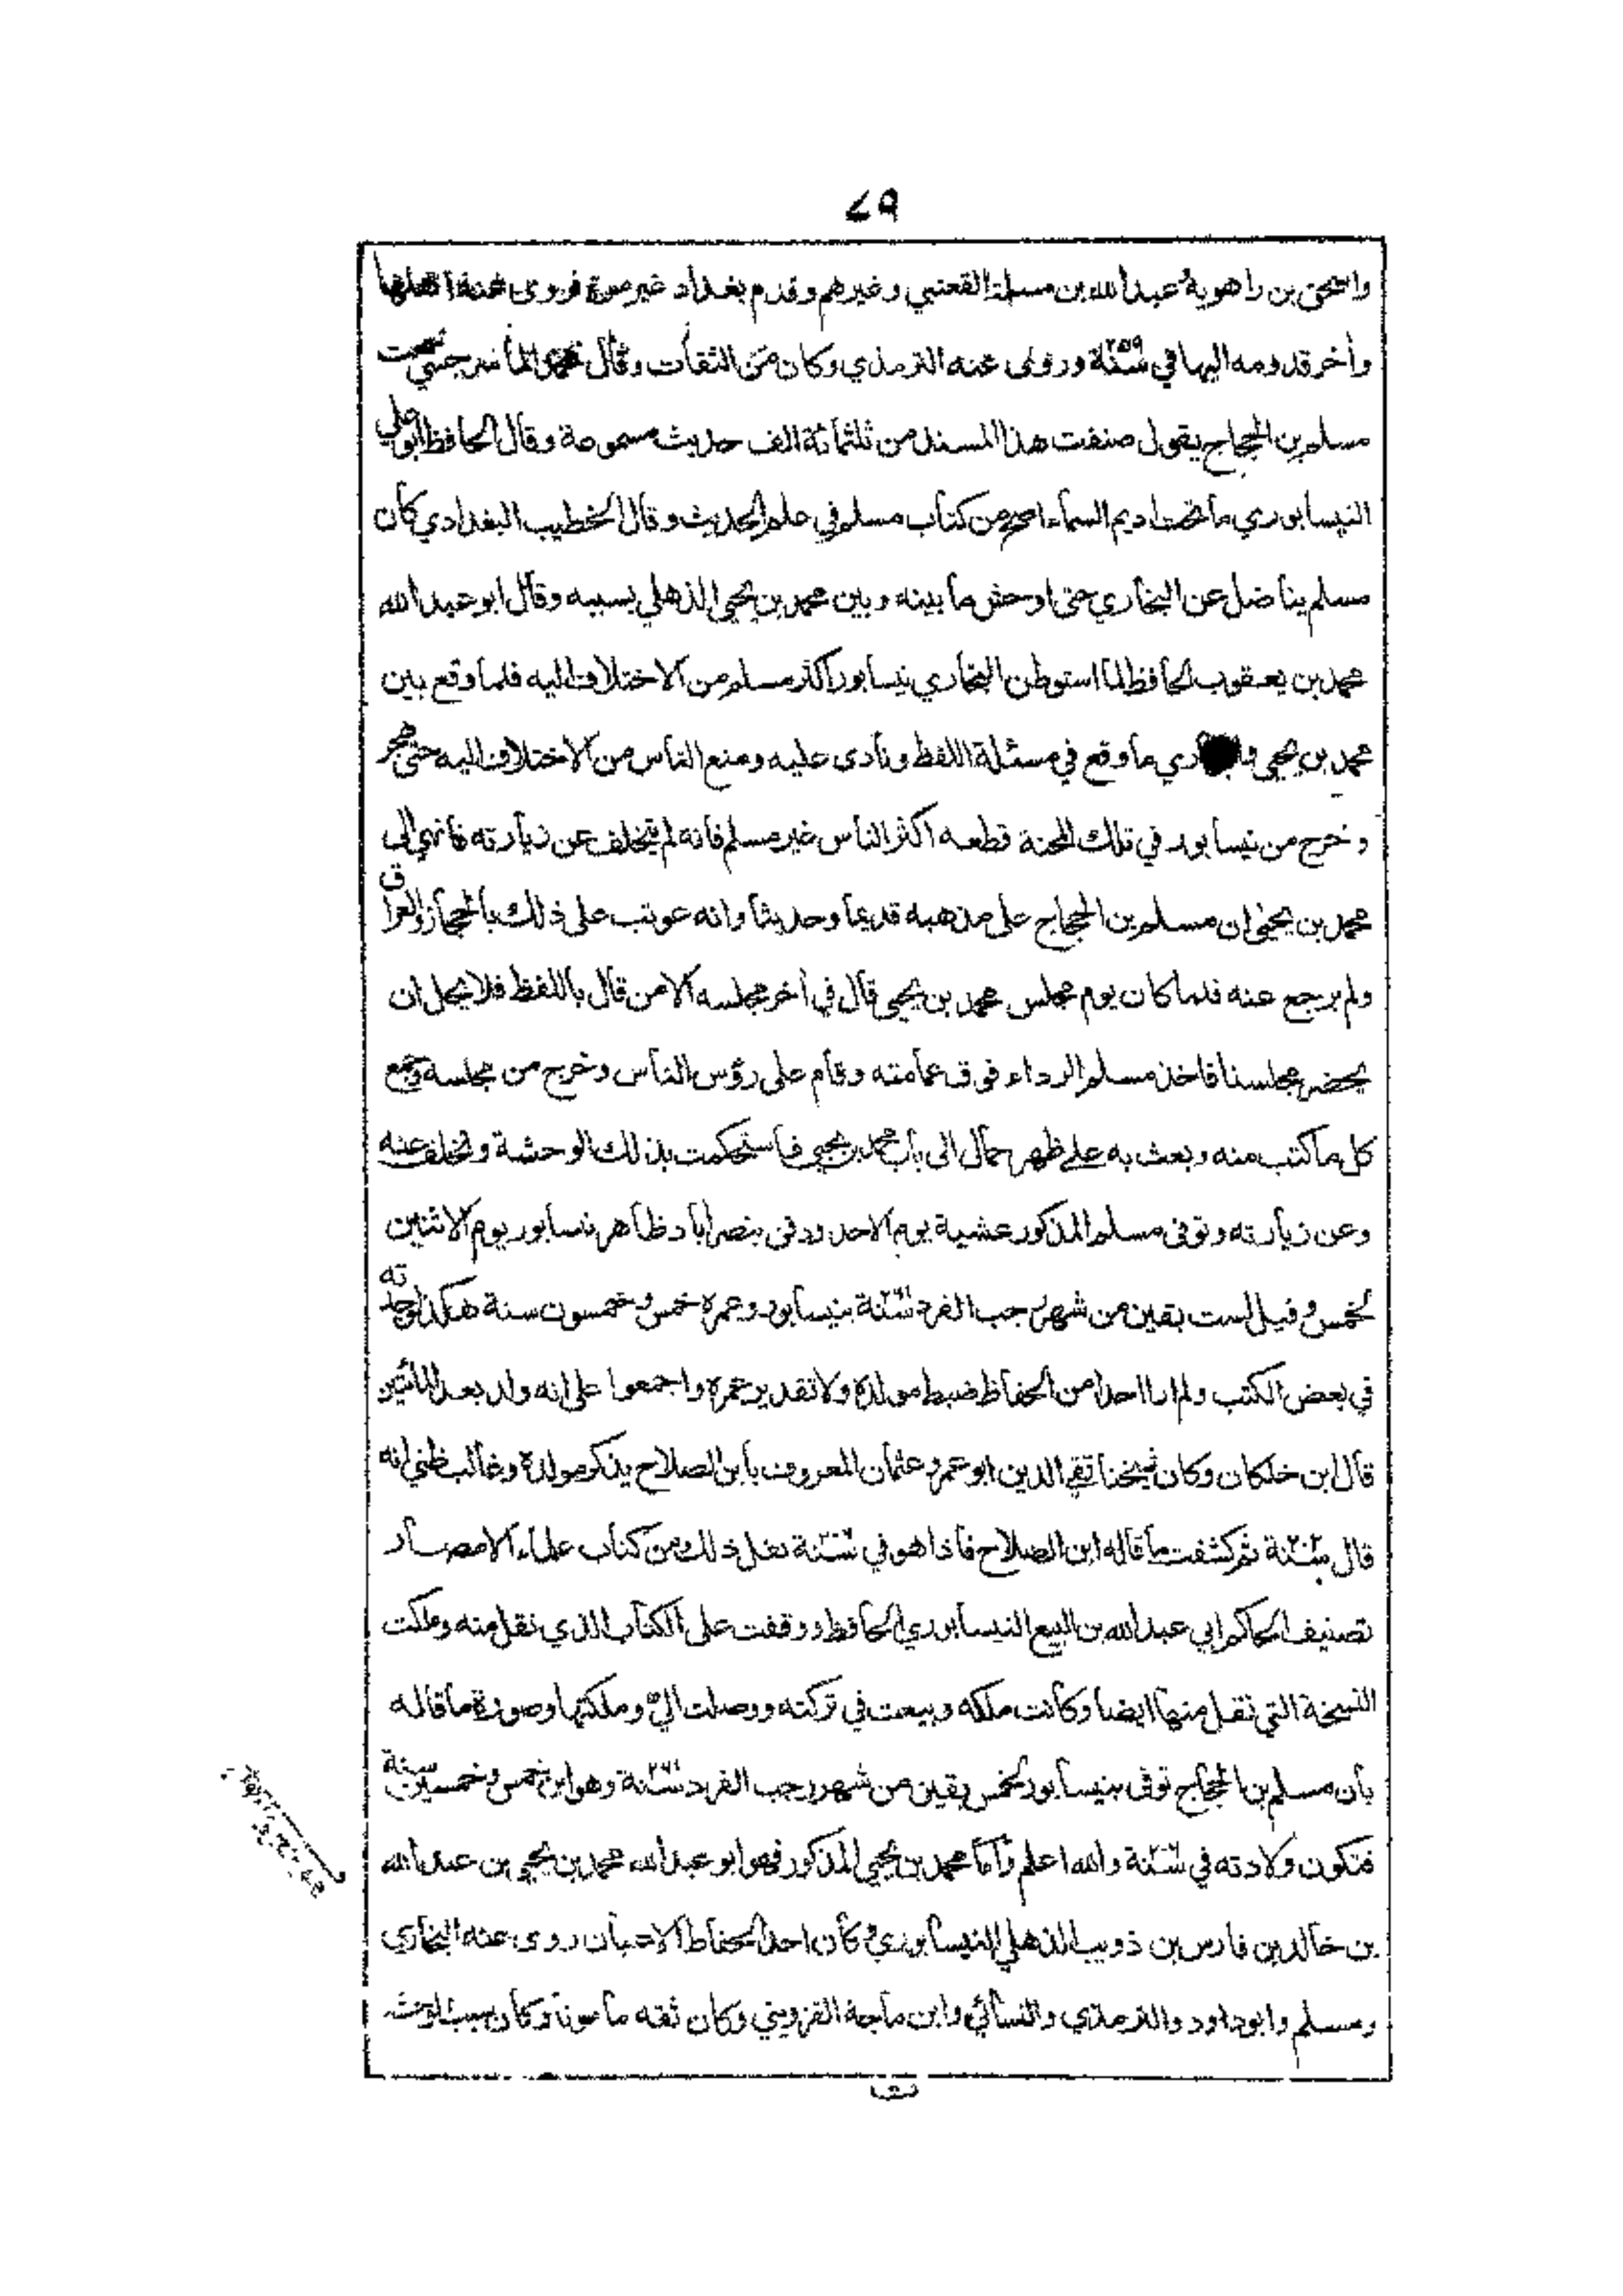 ٨٩
واسحق بن راهويه وعبدالله بن مسلمة القعنبي وغيرهم وقدم بغداد غير مرة فروى عنه اهلها
وأخر قدومه اليها في سنة ٢٥٩ وروى عنه الترمذي وكان من الثقات وقال محمد الماسرجسي سمعت
مسلم بن الحجاج يقول صنفت هذا المسند من ثلثمائة الف حديث مسموعة وقال الحافظ ابو علي
النيسابوري ما تحت اديم السماء اصح من كتاب مسلم في علم الحديث وقال الخطيب البغدادي كان
مسلم يناضل عن البخاري حتى اوحش ما بينه وبين محمد بن يحيى الذهلي بسببه وقال ابو عبدالله
محمد بن يعقوب الحافظ لما استوطن البخاري نيسابور اكثر مسلم من الاختلاف اليه فلما وقع بين
محمد بن يحيى والبخاري ما وقع في مسئلة اللفظ ونادى عليه ومنع الناس من الاختلاف اليه حتى هجر
وخرج من نيسابور في تلك المحنة قطعه اكثر الناس غير مسلم فانه لم يتخلف عن زيارته فانهي الى
محمد بن يحيى ان مسلم بن الحجاج على مذهبه قديما وحديثا وانه عوتب على ذلك بالحجاز والعراق
ولم يرجع عنه فلما كان يوم مجلس محمد بن يحيى قال في أخر مجلسه الا من قال باللفظ فلا يحل ان
يحضر مجلسنا فاخذ مسلم الرداء فوق عمامته وقام على رؤس الناس وخرج من مجلسه وجمع
كل ما كتب منه وبعث به على ظهر حمال الى باب محمد بن يحيى فاستحكمت بذلك الوحشة وتخلف عنه
وعن زيارته وتوفى مسلم المذكور عشية يوم الاحد ودفن بنصراباد ظاهر نيسابور يوم الاثنين
لخمس وقيل لست بقين من شهر رجب الفرد سنة ٢٦١ بنيسابور وعمره خمس وخمسون سنة هكذا وجدته
في بعض الكتب ولم ار احدا من الحفاظ ضبط مولده ولا تقدير عمره واجمعوا على انه ولد بعد المائتين
قال ابن خلكان وكان شيخنا تقي الدين ابو عمرو عثمان المعروف بابن الصلاح يذكر مولده وغالب ظني انه
قال سنة ٢٠٢ ثم كشفت ما قاله ابن الصلاح فاذا هو في سنة ٢٠٦ نقل ذلك من كتاب علماء الامصار
تصنيف الحاكم ابي عبدالله بن البيع النيسابوري الحافظ ووقفت على الكتاب الذي نقل منه وملكت
النسخة التي نقل منها ايضا وكانت ملكه وبيعت في تركته ووصلت الي وملكتها وصورة ما قاله
بان مسلم بن الحجاج توفى بنيسابور لخمس بقين من شهر رجب الفرد سنة ٢٦١ وهو ابن خمس وخمسين سنة
فتكون ولادته في سنة ٢٠٦ والله اعلم وأما محمد بن يحيى المذكور فهو ابو عبدالله محمد بن يحيى بن عبدالله
بن خالد بن فارس بن ذويب الذهلي النيسابوري وكان احد الحفاظ الاعيان روى عنه البخاري
ومسلم وابو داود والترمذي والنسائي وابن ماجة القزويني وكان ثقه مأمونا وكان سبب الوحشة